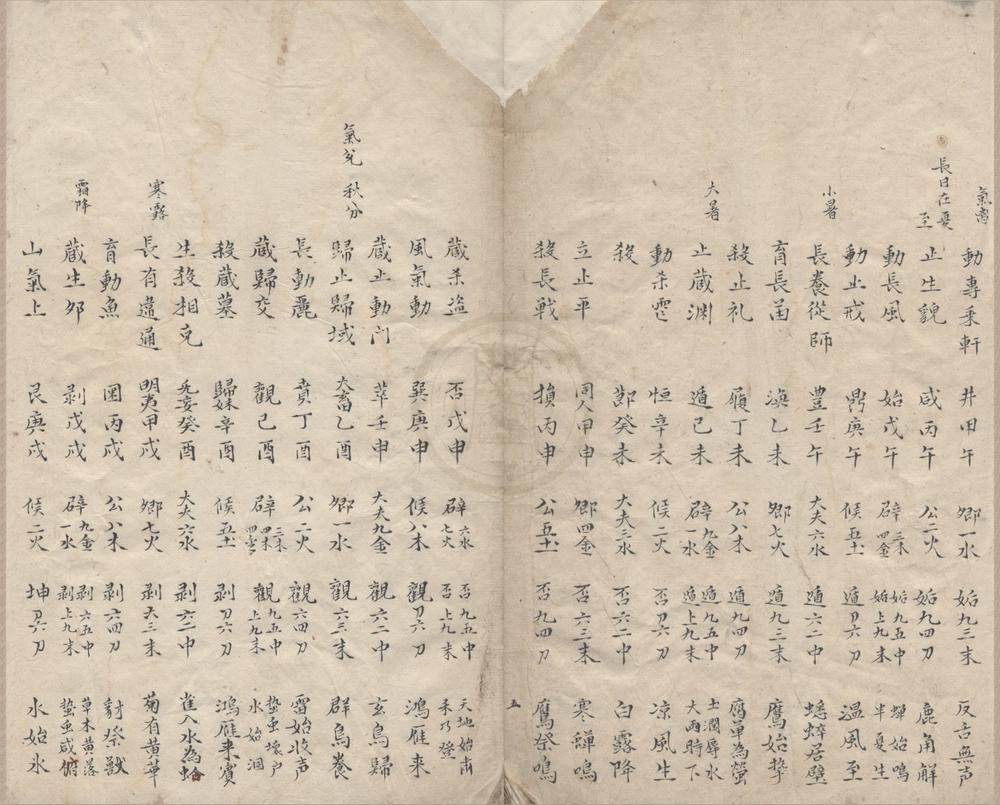 氣离
動專乗軒 井甲午 卿一水 姤九三末 反舌無声
長日在至
止生貌 咸丙午 公二火 姤九四刀 鹿角解
動長風 始戊午 辟三木四金 姤九五中姤上九末 蟬始鳴半夏生
動止戒 鼎庚午 候五土 遁刀六刀 温風至
小暑
長養從師 豊壬午 大夫六水 遁六二中 蟋蟀居壁
育長菌 渙乙未 卿七火 遁九三末 鷹始摯
殺止礼 履丁未 公八木 遁九四刀 腐草為螢
大暑
止藏淵 遁己未 辟九金一水 遁九五中遁上九末 土潤辱水大雨時下
動杀雹 恒辛未 候二火 否刀六刀 凉風生
殺 節癸未 大夫三水 否六二中 白露降
立止平 同人甲申 卿四金 否六三末 寒蟬鳴
殺長戦 損丙申 公五土 否九四刀 鷹祭鳴
五
藏杀盗 否戊申 辟六水七火 否九五中否上九末 天地始肃禾乃登
風氣動 巽庚申 候八木 觀刀六刀 鴻雁来
藏止動門 萃壬申 大夫九金 觀六二中 玄鳥歸
氣兊 秋分
歸止歸域 大畜乙酉 卿一水 觀六三末 群鳥養
長動麗 賁丁酉 公二火 觀六四刀 雷始收声
藏歸交 觀己酉 辟三木四金 觀九五中觀上九末 蟄虫坯户水始涸
殺藏墓 歸妹辛酉 候五土 剥刀六刀 鴻雁来賓
生殺相克 无妄癸酉 大夫六水 剥六二中 雀入水為蛤
寒露
長有遠通 明夷甲戌 卿七火 剥六三末 菊有黄華
育動魚 困丙戌 公八木 剥六四刀 豺祭獸
霜降
藏生邜 剥戊戌 辟九金一水 剥六五中剥上九末 草木黄落蟄虫咸俯
山氣上 艮庚戌 候二火 坤刀六刀 水始氷